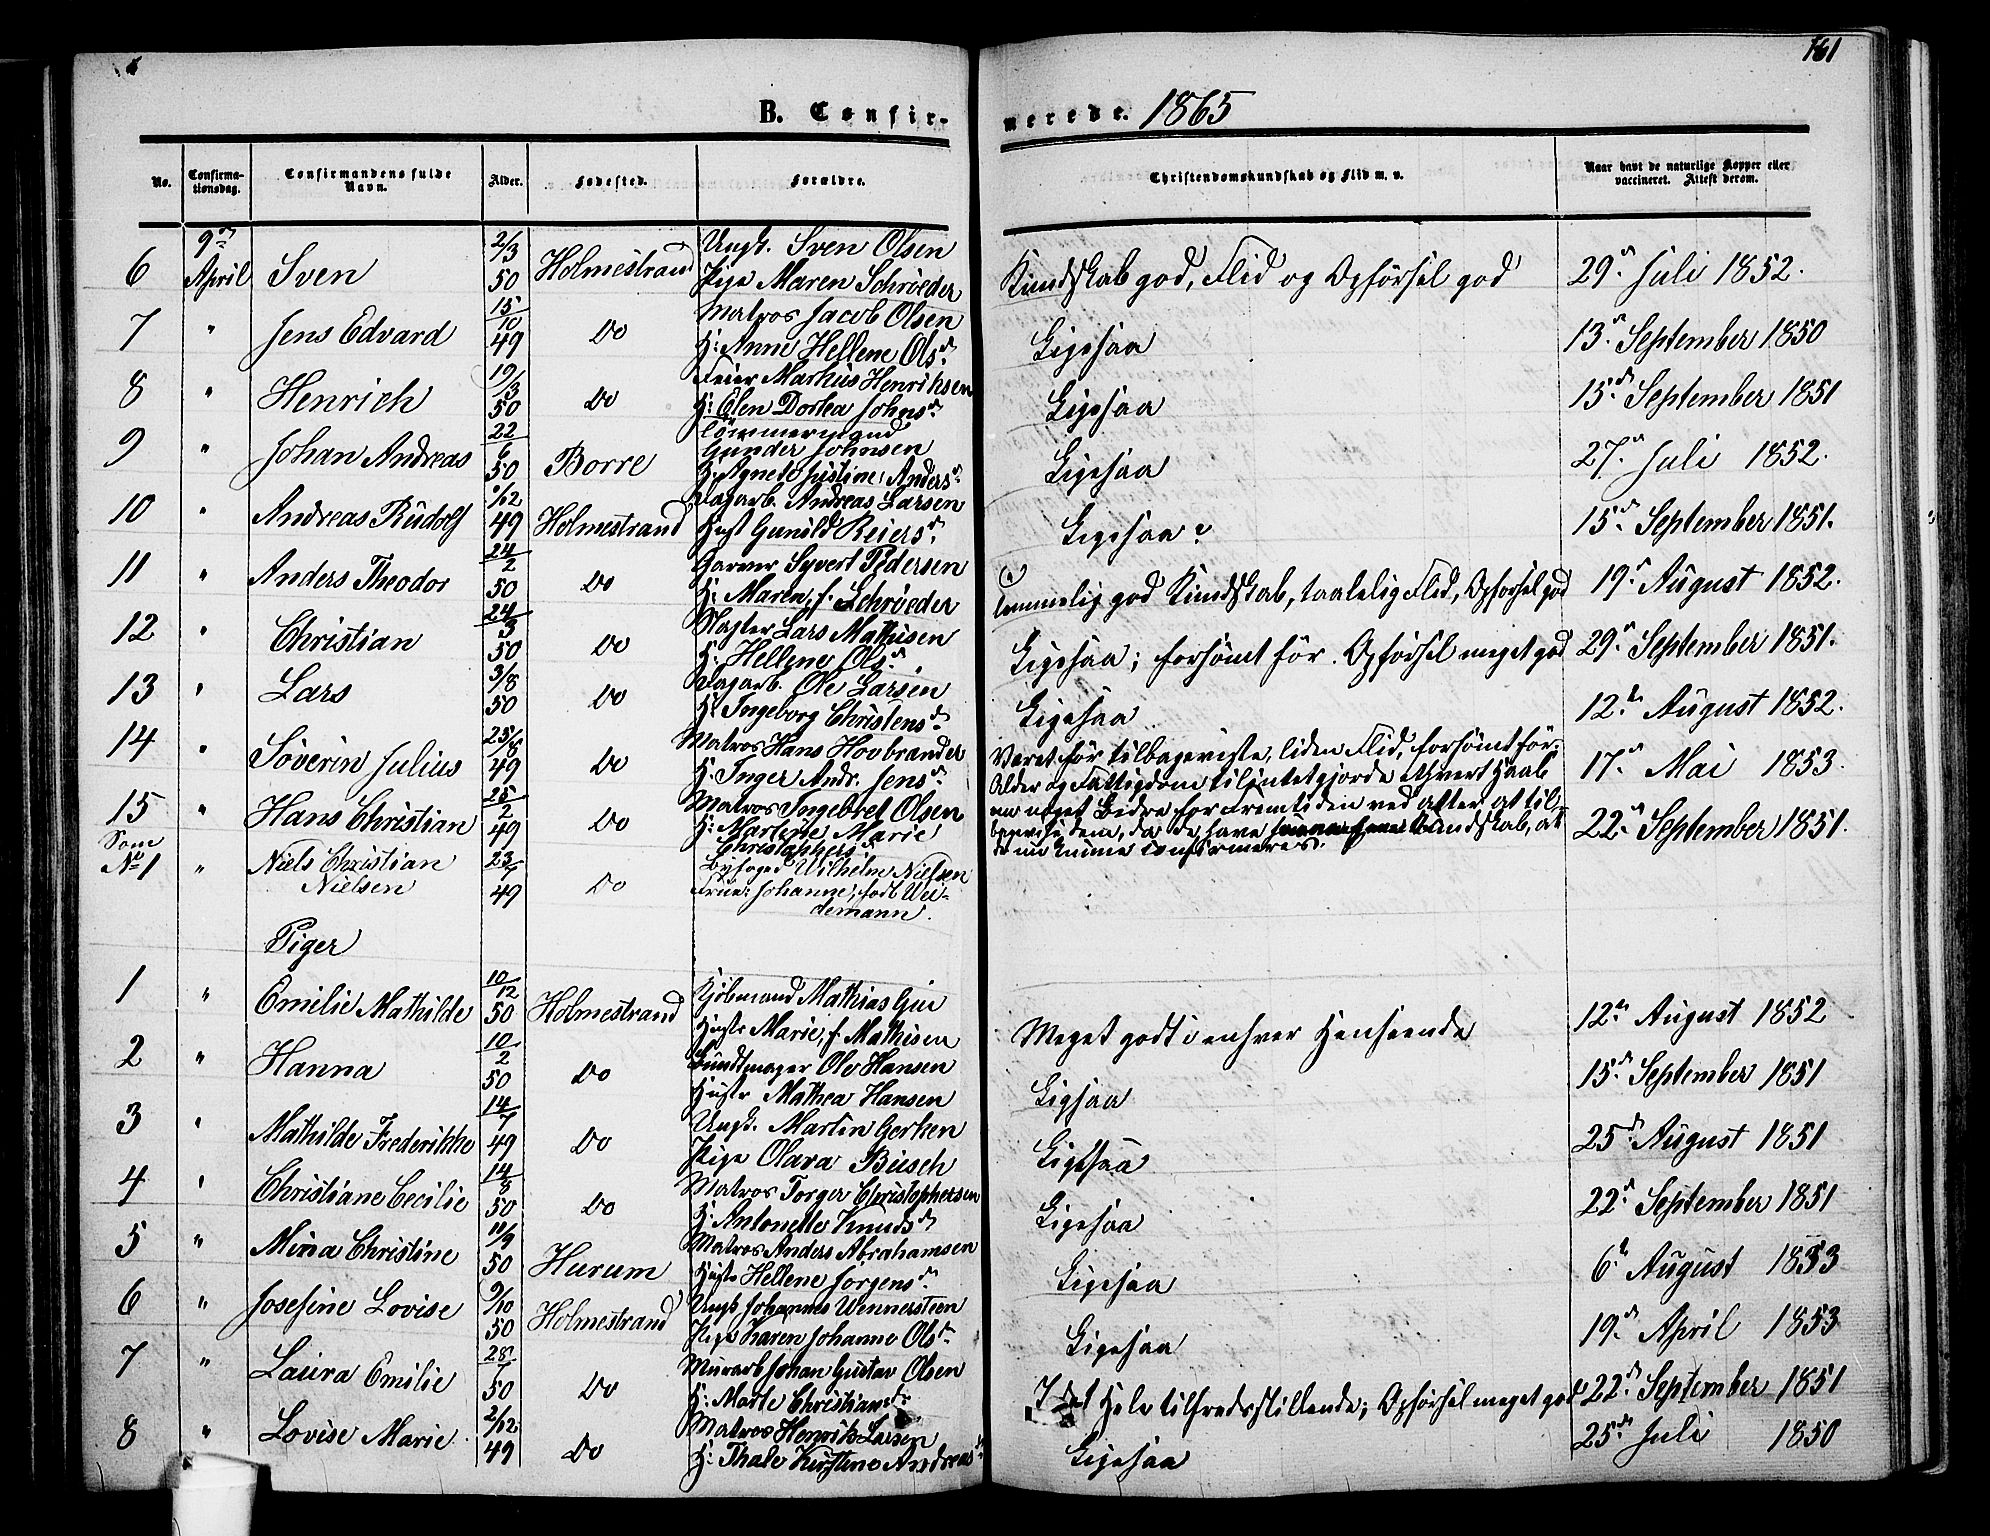 161
B. Confirmerede. 1865
No. Confirmationsdag. Confirmandens fulde Navn. Alder. Fødested. Forældre. Christendomskundskab og Flid m. v. Naar havt de naturlige Kopper eller vaccineret. Attest derom.
6 9de April Sven 2/3 50 Holmestrand Ungk. Sven Olsen Pige Maren Schrøeder Kundskab god, Flid og Opførsel god 29de Juli 1852.
7 " Jens Edvard 15/10 49 Do Matros Jacob Olsen H: Anne Hellene Olsd. Ligesaa 13de September 1850
8 " Henrich 19/3 50 Do Feier Markus Henriksen H: Elen Dortea Johnsd. Ligesaa 15de September 1851
9 " Johan Andreas 22/6 50 Borre Tömmermand Gunder Johnsen H: Agnete Justine Andersd. Ligesaa 27de Juli 1852.
10 " Andreas Rudolf /12 49 Holmestrand Dagarb. Andreas Larsen Hust Gunild Reiersd. Ligesaa 15de September 1851.
11 " Anders Theodor 24/2 50 Do Garver Syvert Pedersen H: Maren, f. Schrøeder temmelig god Kundskab, taalelig Flid, Opførsel god 19de August 1852.
12 " Christian 24/3 50 Do Slagter Lars Mathisen H: Hellene Olsd. Ligesaa; forsømt før. Opførsel meget god 29de September 1851.
13 " Lars 3/8 50 Do Dagarb. Ole Larsen H: Ingeborg Christensd. Ligesaa 12te August 1852.
14 " Söverin Julius 25/8 49 Do Matros Hans Hovbrander H. Inger Andr. Jensd. 17de Mai 1853.
15 " Hans Christian 25/2 49 Do Matros Ingebret Olsen H: Martine Marie Christophersd. 22de September 1851.
Været før tilbageviste, liden Flid, forsømt før.
Alder og Fattigdom tilintetgjorde ethvert Haab
om noget Bedre for Fremtiden ved atter at til-
bagevise dem, da de have Kundskab, at
de nu kunne confirmeres.
Som No 1 " Niels Christian Nielsen 23/7 49 Do Byfoged Wilhelm Nielsen Frue: Johanne, født Weidemann.
Piger
1 " Emilie Mathilde 10/12 50 Holmestrand Kjøbmand Mathias Giu Hustr Marie, f. Mathisen Meget godt i enhver Henseende 12te August 1852
2 " Hanna 10/2 50 Do Bundtmager Ole Hansen Hustr Mathea Hansen Ligsaa 15de September 1851
3 " Mathilde Frederikke 14/7 49 Do Ungk. Martin Gerken Pige Olava Busch Ligesaa 25de August 1851
4 " Christiane Cecilie 14/8 50 Do Matros Torger Christophersen H: Antonette Knudsd. Ligesaa 22de September 1851
5 " Mina Christine 18/9 50 Hurum Matros Anders Abrahamsen Hustr Hellene Jørgensd. Ligesaa 6te August 1853
6 " Josefine Lovise 9/10 50 Holmestrand Ungk Johannes Wennersteen Pige Karen Johanne Olsd. Ligesaa 19de April 1853
7 " Laura Emilie 28/7 50 Do Murarb Johan Gustav Olsen H: Marte Christiansd. I det Hele tilfredsstillende; Opførsel meget god 22de September 1851
8 " Lovise Marie 2/12 49 Do Matros Henrik Larsen H: Thale Kirstine Andreasd. Ligesaa 25de Juli 1850